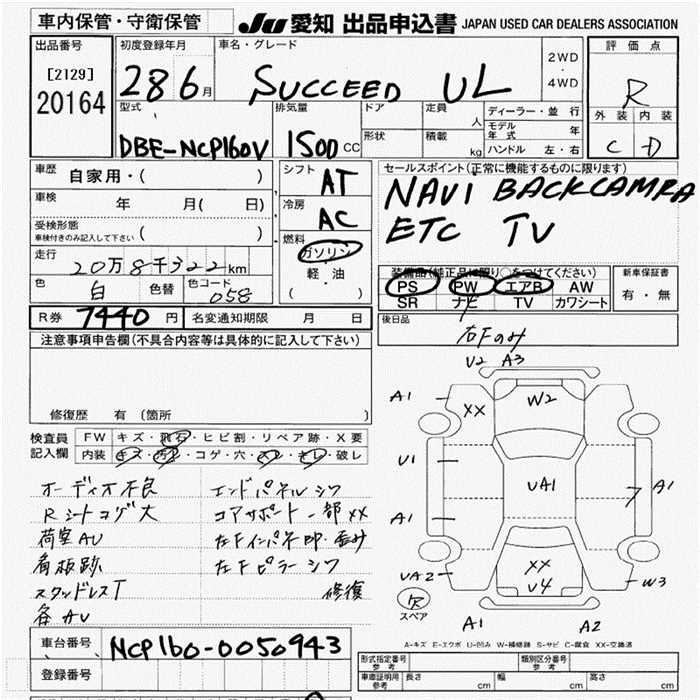 車内保管・守衛保管
JU 愛知 出品申込書 JAPAN USED CAR DEALERS ASSOCIATION
出品番号
[2129]
20164
初度登録年月
28 6月
車名・グレード
SUCCEED UL
2WD
・
4WD
評価点
R
外装 内装
C D
型式
DBE-NCP160V
排気量
1500 CC
ドア
形状
定員
人
積載
kg
ディーラー・並行
モデル年式 年
ハンドル 左・右
車歴 自家用・( )
車検 年 月( 日)
受検形態
車検付きのみ記入して下さい ( )
走行 20万8千322km
色 白 色替 色コード 058
シフト AT
冷房 AC
燃料
ガソリン
軽・油
( )
セールスポイント(正常に機能するものに限ります)
NAVI BACKCAMRA
ETC TV
装備品(純正品に限り○をつけてください)
PS PW エアB AW
SR ナビ TV カワシート
新車保証書
有・無
R券 7440円 名変通知期限 月 日
後日品
注意事項申告欄(不具合内容等は具体的に記入して下さい)
修復歴 有(箇所 )
検査員
記入欄
FW キズ・飛石・ヒビ割・リペア跡・X要
内装 キズ・汚れ・コゲ・穴・スレ・キレ・破レ
オーディオ不良
Rシートコゲ大
荷室AU
看板跡
スタッドレスT
各AU
エンドパネルシワ
コアサポート一部XX
左Fインパネ部・歪み
左Fピラーシワ
修復
右Fのみ
U2 A3
A1 XX W2
U1 UA1 A1
A1 7
UA2 XX U4 W3
スペア
A1 A2
A-キズ E-エクボ U-凹み W-補修跡 S-サビ C-腐食 XX-交換済
車台番号 NCP160-0050943
登録番号
形式指定番号
参考
類別区分番号
参考
車庫証明用
参考
長さ cm 幅 cm 高さ cm